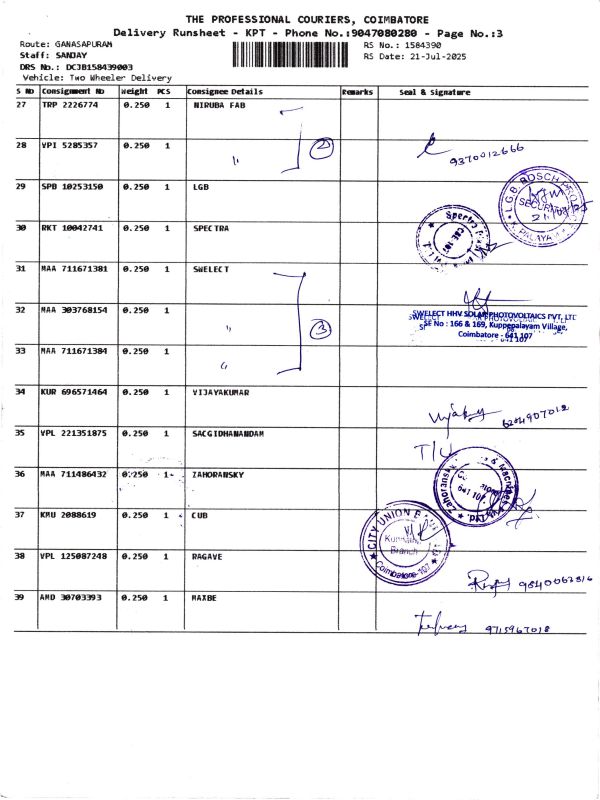 THE PROFESSIONAL COURIERS, COIMBATORE
Delivery Runsheet - KPT - Phone No.:9047080280 - Page No.:3
Route: GANASAPURAM
RS No.: 1584390
Staff: SANJAY
RS Date: 21-Jul-2025
DRS No.: DCJB158439003
Vehicle: Two Wheeler Delivery
S No Consignment No Weight PCS Consignee Details Remarks Seal & Signature
27 TRP 2226774 0.250 1 NIRUBA FAB
28 VPI 5285357 0.250 1 " 2
9370012666
29 SPB 10253150 0.250 1 LGB
L.G.B. BOSCH
SECURITY
K. PALAYAM
30 RKT 10042741 0.250 1 SPECTRA
Spectra
CBE 107
31 MAA 711671381 0.250 1 SWELECT
32 MAA 303768154 0.250 1 " 3
SWELECT HHV SOLAR PHOTOVOLTAICS PVT. LTD
SF No : 166 & 169, Kuppepalayam Village,
Coimbatore - 641 107
33 MAA 711671384 0.250 1 "
34 KUR 696571464 0.250 1 VIJAYAKUMAR
Vijaykumar 6204907012
35 VPL 221351875 0.250 1 SACGIDHANANDAM
T/L
36 MAA 711486432 0.250 1 ZAHORANSKY
Zahoransky
641 107
Ltd.
37 KMU 2088619 0.250 1 CUB
CITY UNION BANK
Branch
Coimbatore-107
38 VPL 125087248 0.250 1 RAGAVE
9840062816
39 AMD 30703393 0.250 1 MAXBE
9715967018